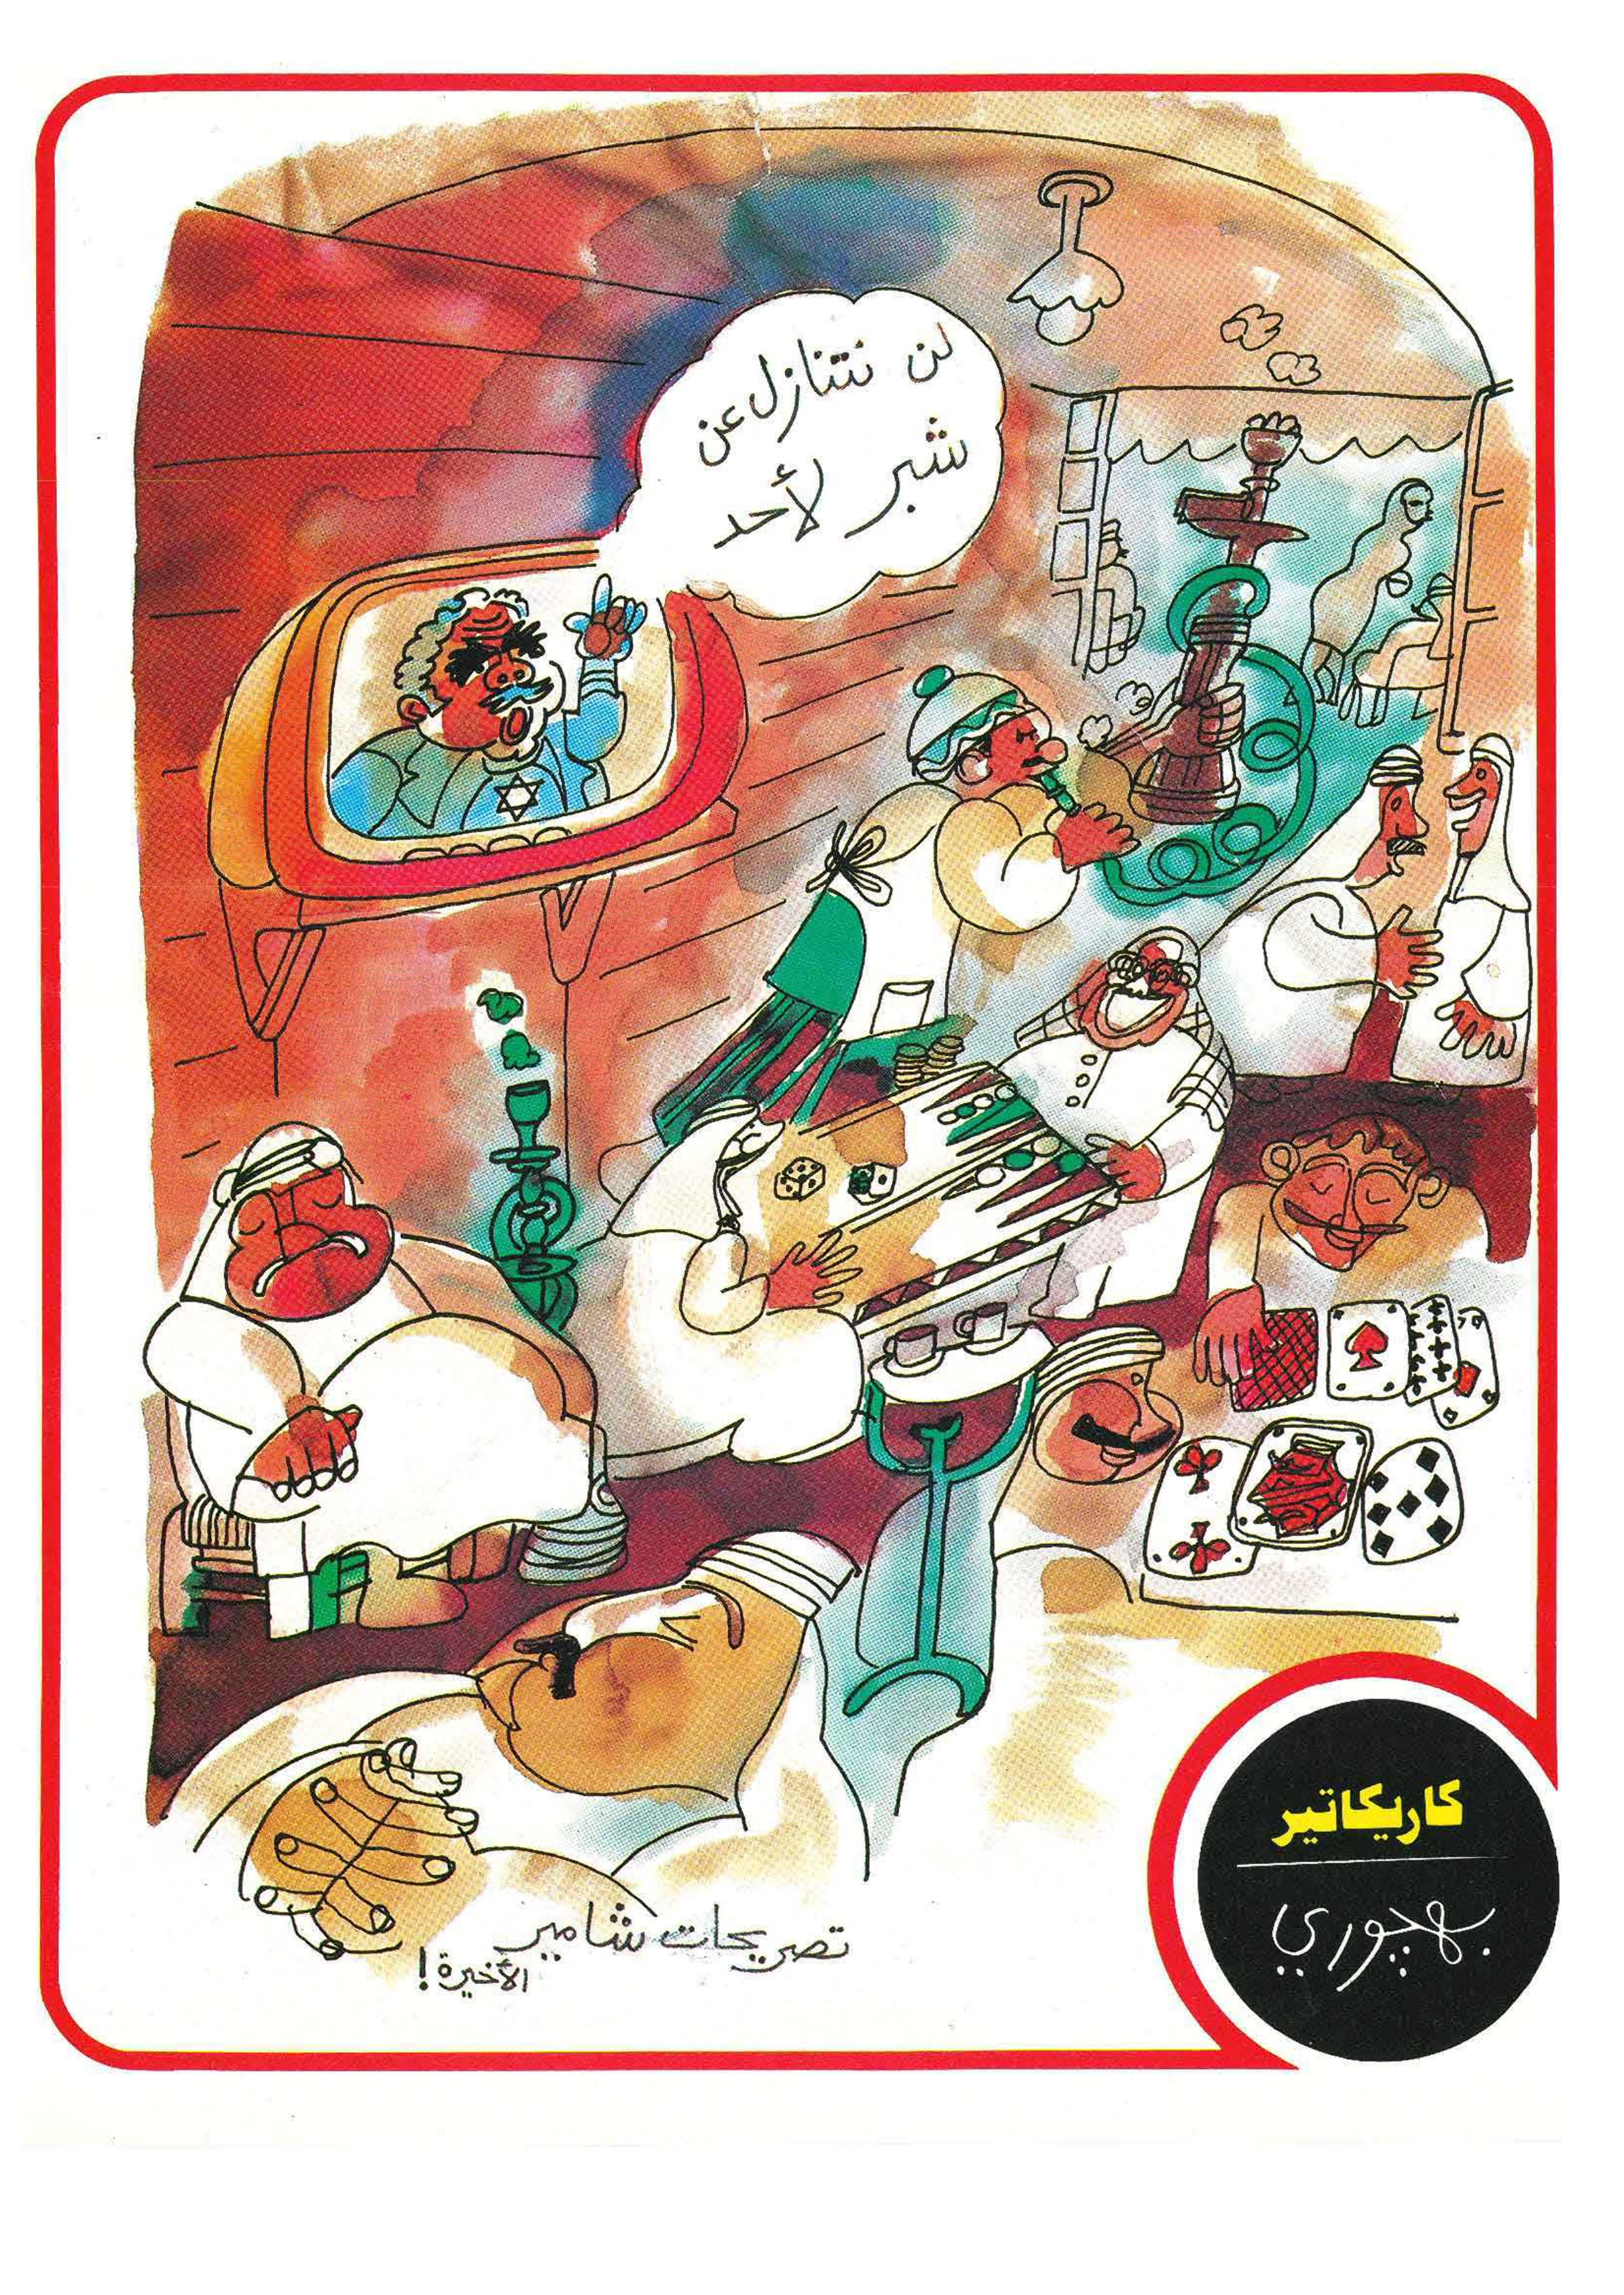 لن نتنازل عن
شبر لأحد
تصريحات شامير
الأخيرة!
كاريكاتير
بهچوري